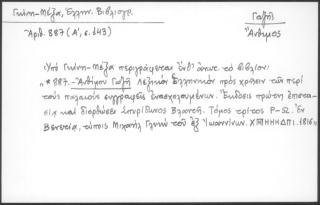 Γκίνη-Μέξα, Ἑλλην. Βιβλιογρ.
Γαζῆ
Ἄνθιμος
Ἀριθ. 887 (Α', σ. 143)
Ὑπὸ Γκίνη-Μέξα περιγράφεται ἐνθ' ἀνωτ. τὸ βιβλίον:
"* 887.- Ἀνθίμου Γαζῆ Λεξικὸν Ἑλληνικὸν πρὸς χρῆσιν τῶν περὶ
τοὺς παλαιοὺς συγγραφεῖς ἐνασχολουμένων. Ἔκδοσις πρώτη ἐπιστα-
σίᾳ καὶ διορθώσει Σπυρίδωνος Βλαντῆ. Τόμος τρίτος Ρ-Ω. Ἐν
Βενετίᾳ, τύποις Μιχαὴλ Γλυκὺ τοῦ ἐξ Ἰωαννίνων. 1816"